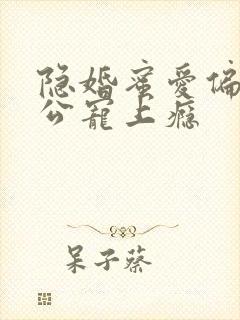 隐婚蜜爱偏
公宠上瘾
呆子蔡